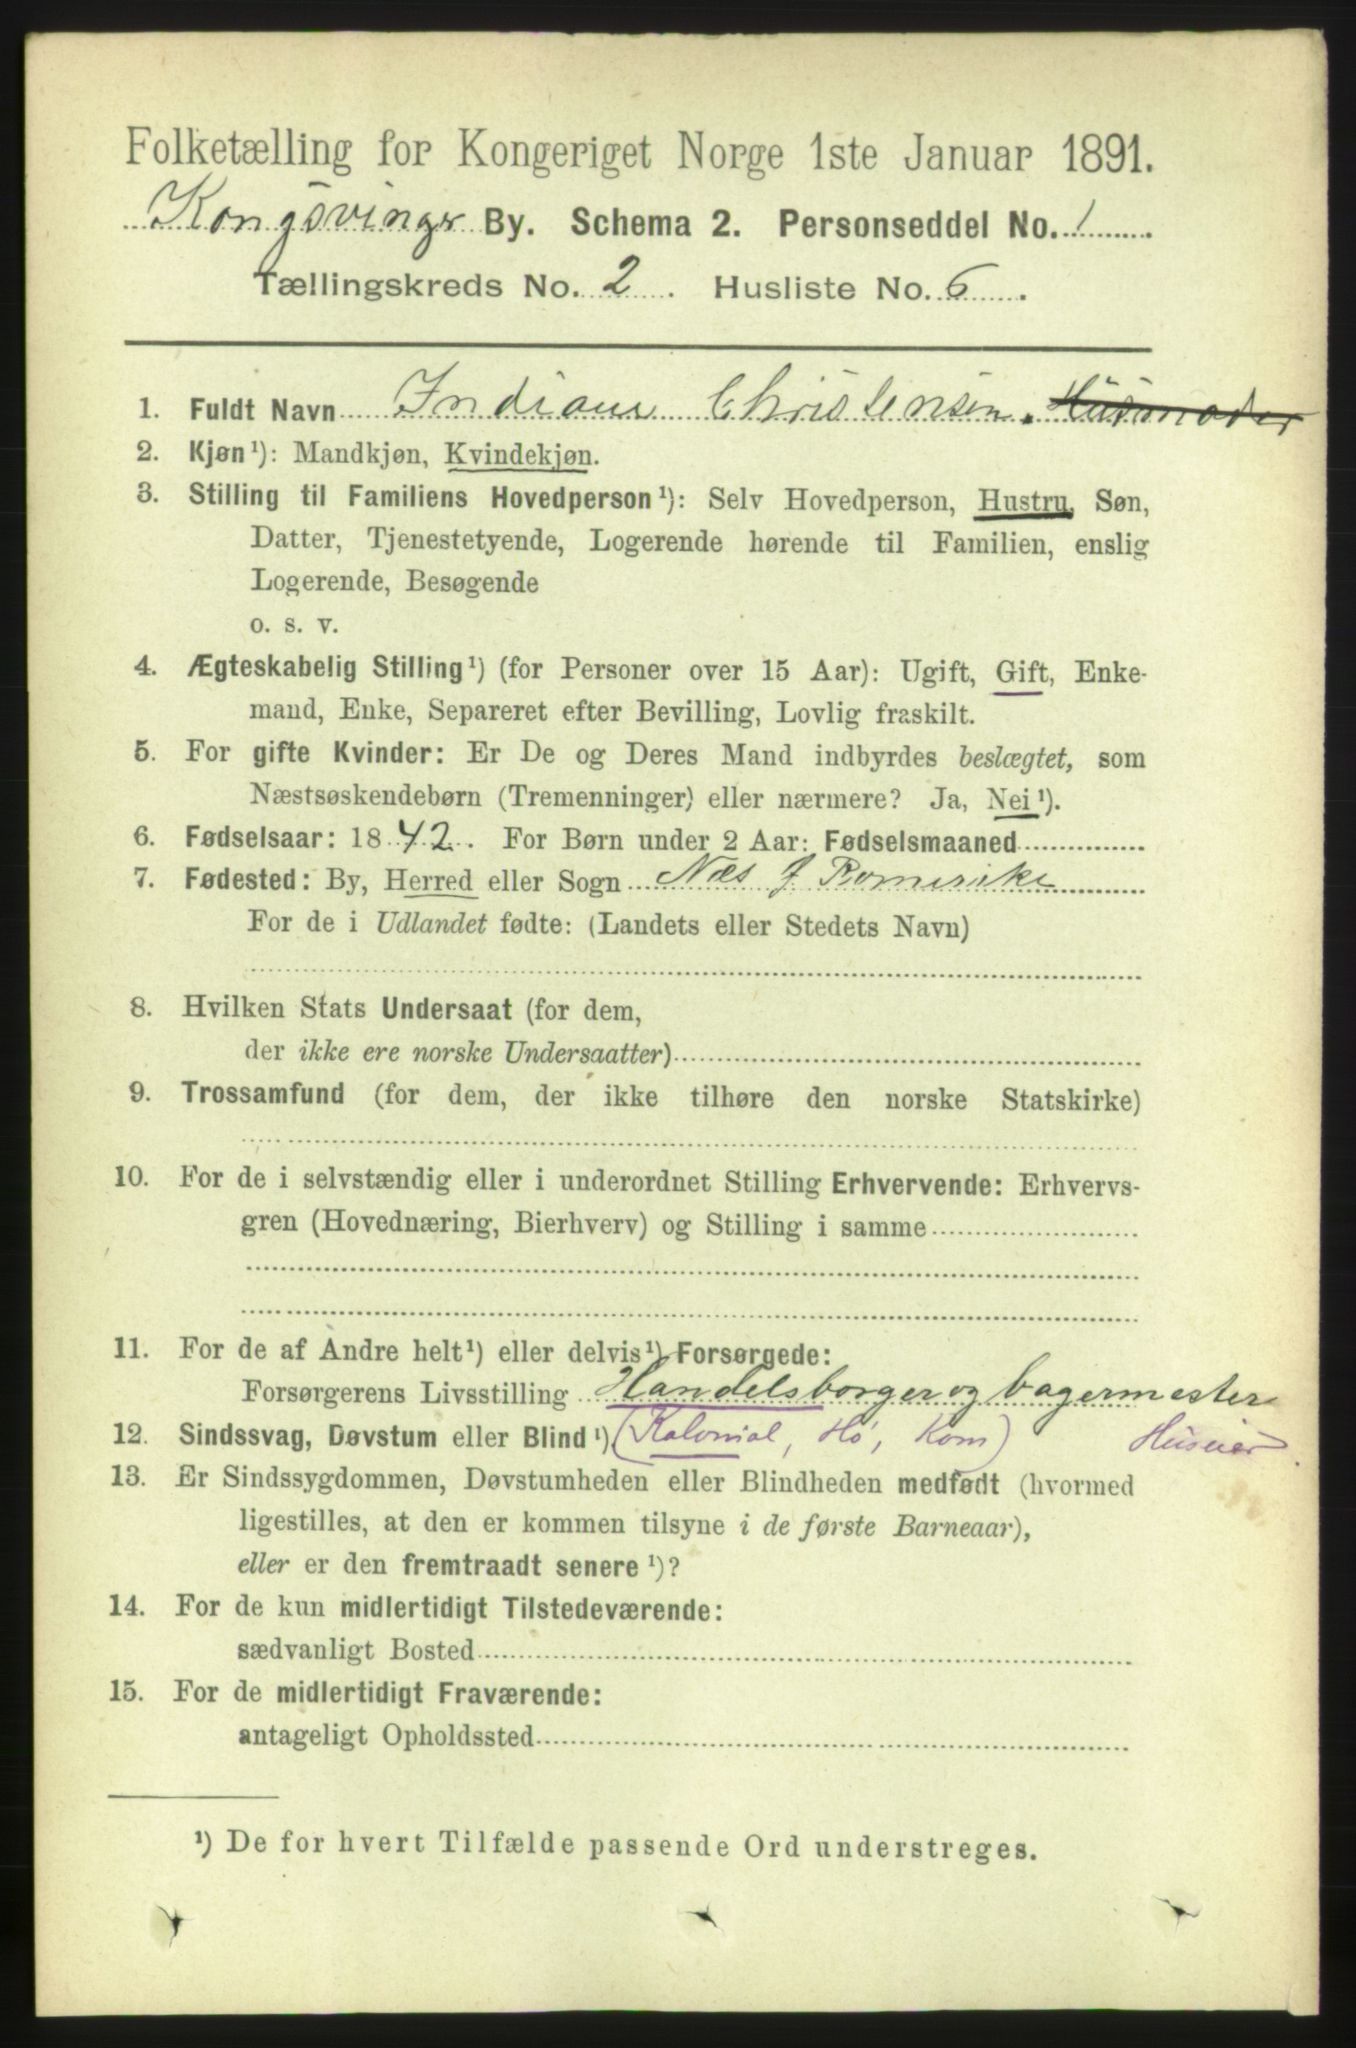 Folketælling for Kongeriget Norge 1ste Januar 1891.
Kongsvinger By. Schema 2. Personseddel No. 1
Tællingskreds No. 2. Husliste No. 6.
1. Fuldt Navn Indiane Christensen. Husmoder
2. Kjøn¹): Mandkjøn, Kvindekjøn.
3. Stilling til Familiens Hovedperson¹): Selv Hovedperson, Hustru, Søn,
Datter, Tjenestetyende, Logerende hørende til Familien, enslig
Logerende, Besøgende
o. s. v.
4. Ægteskabelig Stilling¹) (for Personer over 15 Aar): Ugift, Gift, Enke-
mand, Enke, Separeret efter Bevilling, Lovlig fraskilt.
5. For gifte Kvinder: Er De og Deres Mand indbyrdes beslægtet, som
Næstsøskendebørn (Tremenninger) eller nærmere? Ja, Nei¹).
6. Fødselsaar: 1842. For Børn under 2 Aar: Fødselsmaaned
7. Fødested: By, Herred eller Sogn Næs J Romerike
For de i Udlandet fødte: (Landets eller Stedets Navn)
8. Hvilken Stats Undersaat (for dem,
der ikke ere norske Undersaatter)
9. Trossamfund (for dem, der ikke tilhøre den norske Statskirke)
10. For de i selvstændig eller i underordnet Stilling Erhvervende: Erhvervs-
gren (Hovednæring, Bierhverv) og Stilling i samme
11. For de af Andre helt¹) eller delvis¹) Forsørgede:
Forsørgerens Livsstilling Handelsborger og bagermester
12. Sindssvag, Døvstum eller Blind¹) (Kolonial, Hö, Korn) Huseier
13. Er Sindssygdommen, Døvstumheden eller Blindheden medfødt (hvormed
ligestilles, at den er kommen tilsyne i de første Barneaar),
eller er den fremtraadt senere¹)?
14. For de kun midlertidigt Tilstedeværende:
sædvanligt Bosted
15. For de midlertidigt Fraværende:
antageligt Opholdssted
¹) De for hvert Tilfælde passende Ord understreges.